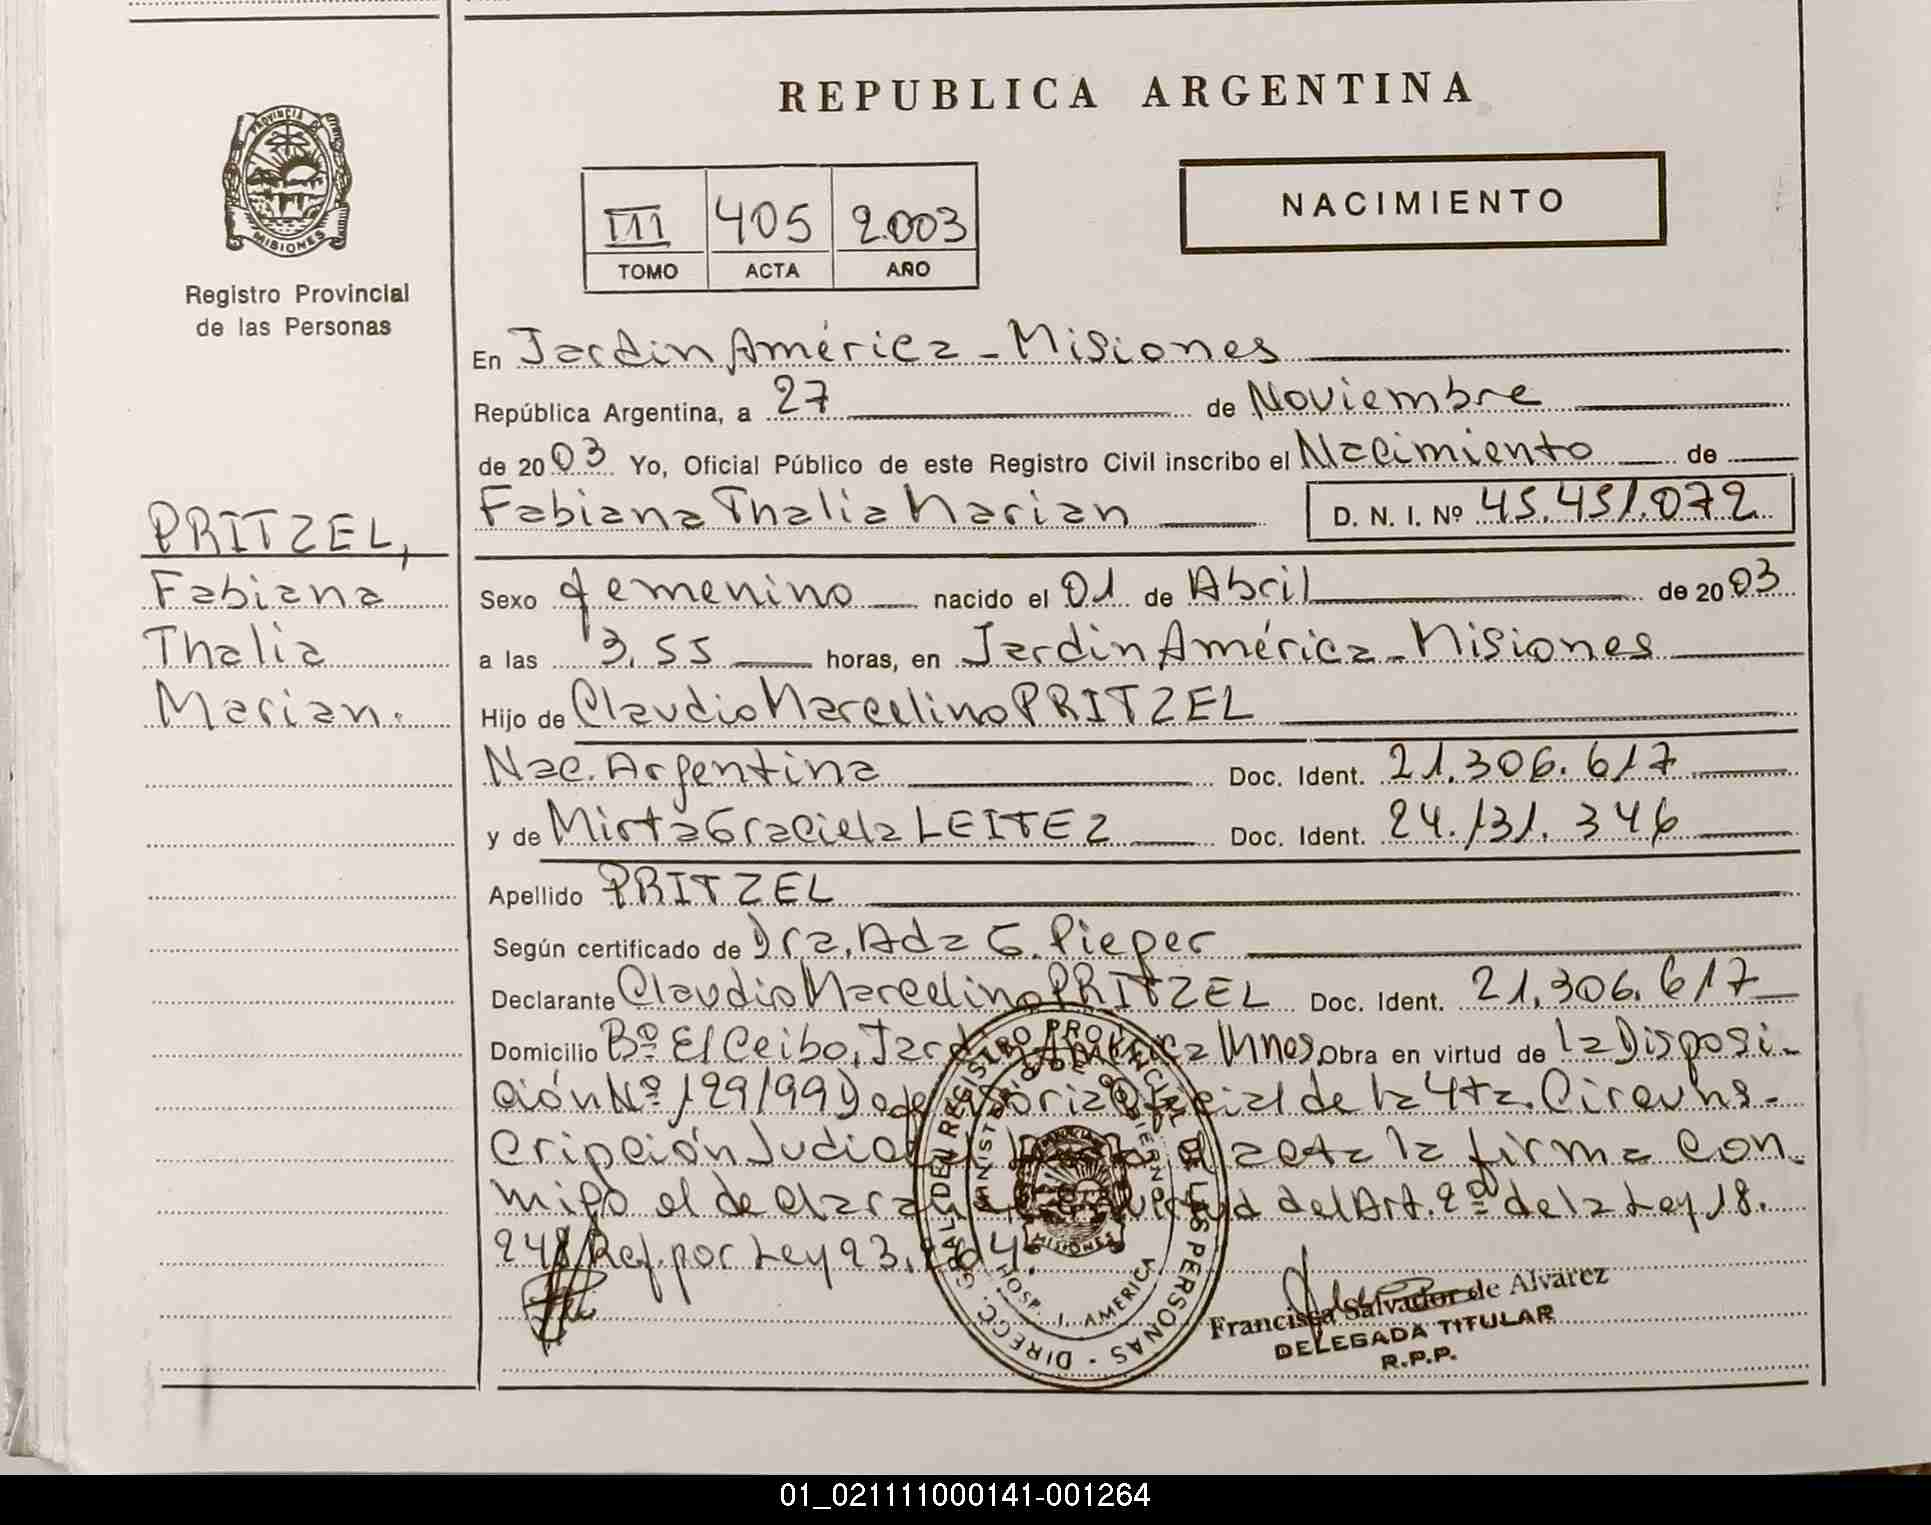 REPUBLICA ARGENTINA
PROVINCIA D
MISIONES
Registro Provincial
de las Personas
III 405 2.003
TOMO ACTA AÑO
NACIMIENTO
En Jardin América - Misiones
República Argentina, a 27 de Noviembre
de 2003 Yo, Oficial Público de este Registro Civil inscribo el Nacimiento de
Fabiana Thalia Marian D. N. I. Nº 45.451.072
PRITZEL,
Fabiana
Thalia
Marian.
Sexo femenino nacido el 01 de Abril de 2003
a las 3,55 horas, en Jardin América - Misiones
Hijo de Claudio Marcelino PRITZEL
Nac. Argentina Doc. Ident. 21.306.617
y de Mirta Graciela LEITEZ Doc. Ident. 24.131.346
Apellido PRITZEL
Según certificado de Dra. Ada G. Pieper
Declarante Claudio Marcelino PRITZEL Doc. Ident. 21.306.617
Domicilio Bº El Ceibo, Jardin América Mnes. Obra en virtud de la Disposi-
ción Nº 129/99 Defensoria Oficial de la 4ta. Circuns-
cripción Judicial el acta la firma con
migo el declarante en virtud del Art. 2º de la Ley 18.
248 Ref. por Ley 23.264.
DIRECC. GRAL. DEL REGISTRO PROVINCIAL DE LAS PERSONAS
MINISTERIO DE GOBIERNO
MISIONES
HOSP. J. AMERICA
Francisca Salvador de Alvarez
DELEGADA TITULAR
R.P.P.
01_021111000141-001264